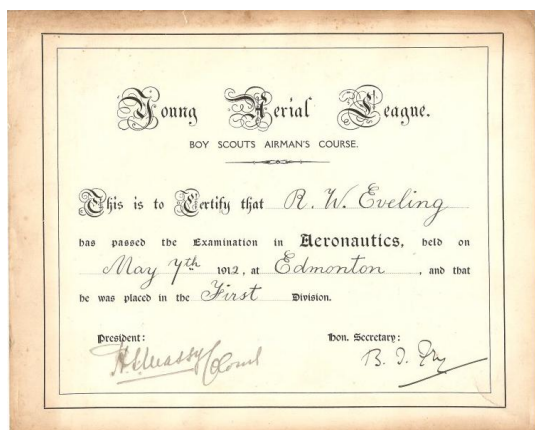 Young Aerial League.
BOY SCOUTS AIRMAN'S COURSE.
This is to Certify that R. W. Eveling
has passed the Examination in Aeronautics, held on
May 7th 1912, at Edmonton, and that
he was placed in the First Division.
President: Hon. Secretary:
H S Massy Colonel